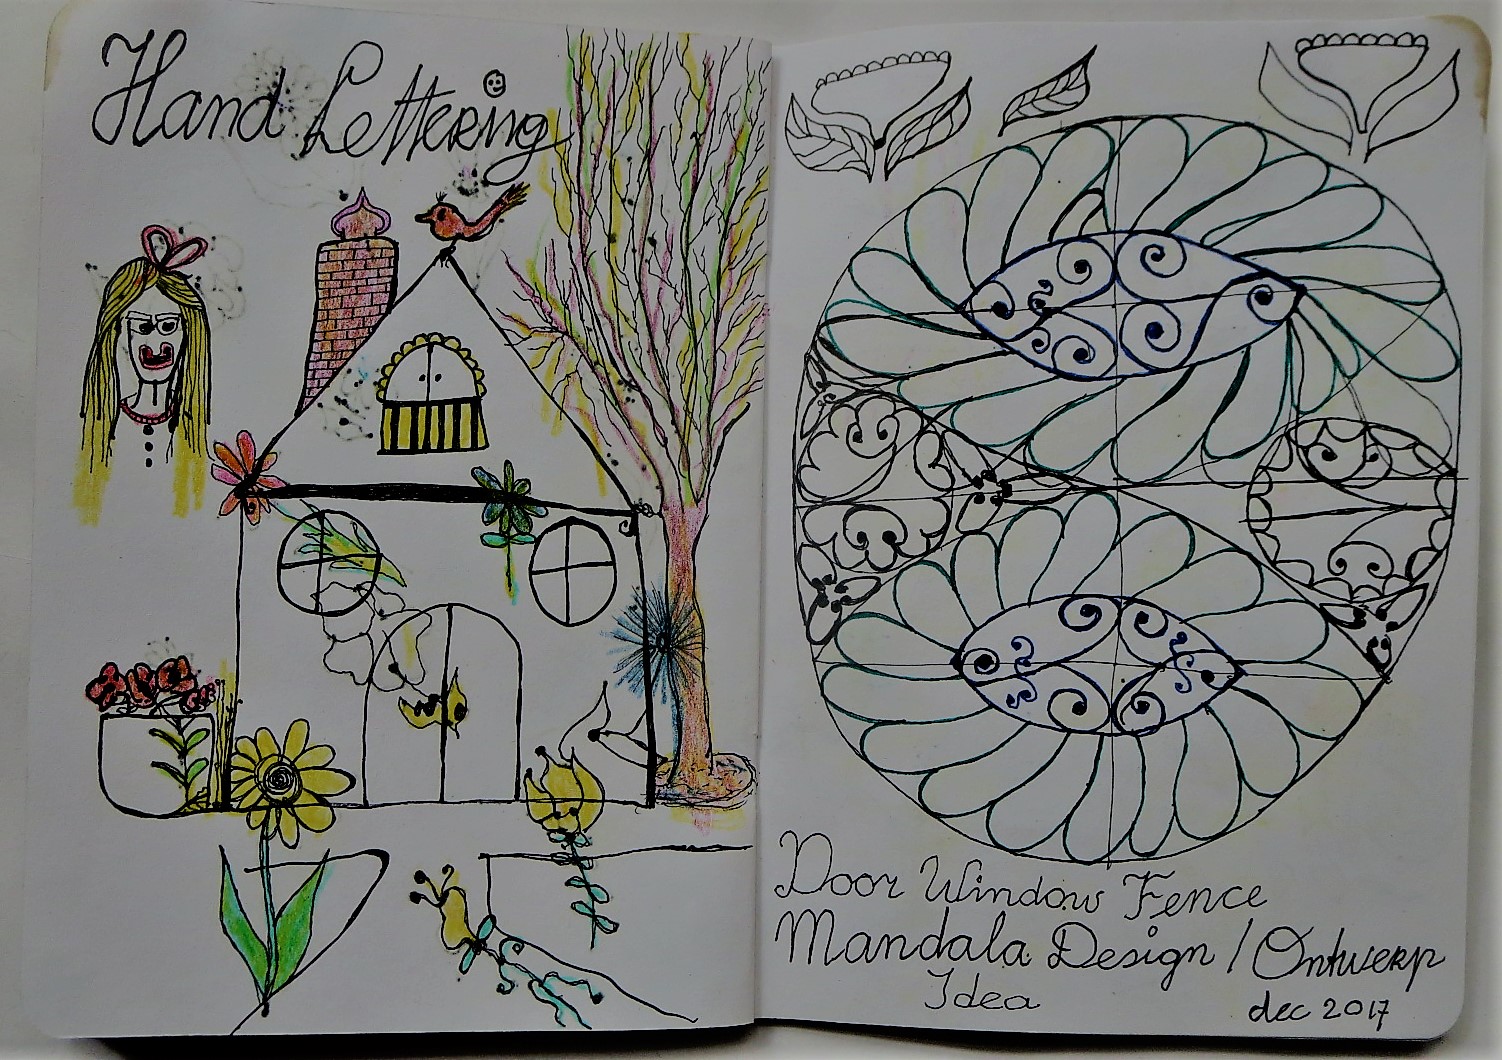 Hand Lettering
Door Window Fence
Mandala Design / Ontwerp
Idea
dec 2017